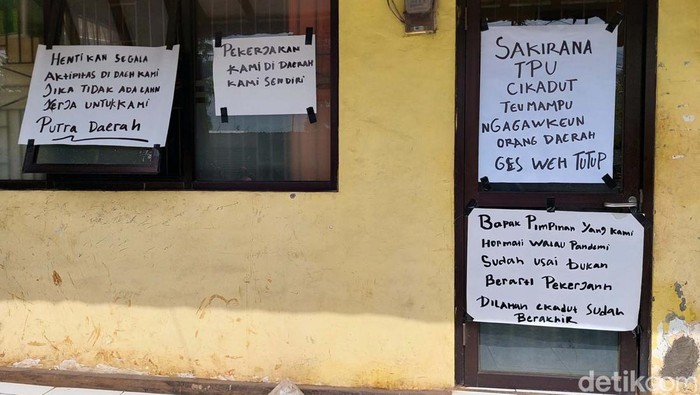 HENTIKAN SEGALA
AKTIPITAS DI DAEH KAMI
JIKA TIDAK ADA LAHN
KERJA UNTUK KAMI
PUTRA DAERAH
PEKERJAKAN
KAMI DI DAERAH
KAMI SENDIRI
SAKIRANA
TPU
CIKADUT
TEU MAMPU
NGAGAWEKEUN
ORANG DAERAH
GES WEH TUTUP
BAPAK PIMPINAN YANG KAMI
HORMATI WALAU PANDEMI
SUDAH USAI BUKAN
BERARTI PEKERJANN
DILAHAN CKADUT SUDAH
BERAKHIR
detikcom